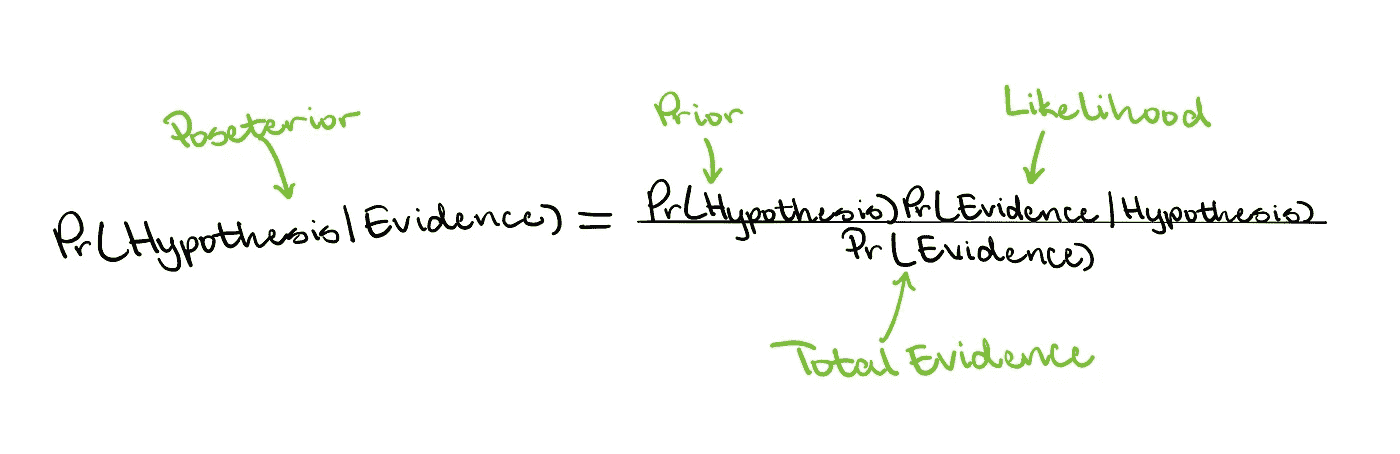 Poseterior
Prior
Likelihood
Pr(Hypothesis|Evidence) = Pr(Hypothesis)Pr(Evidence|Hypothesis)
Pr(Evidence)
Total Evidence